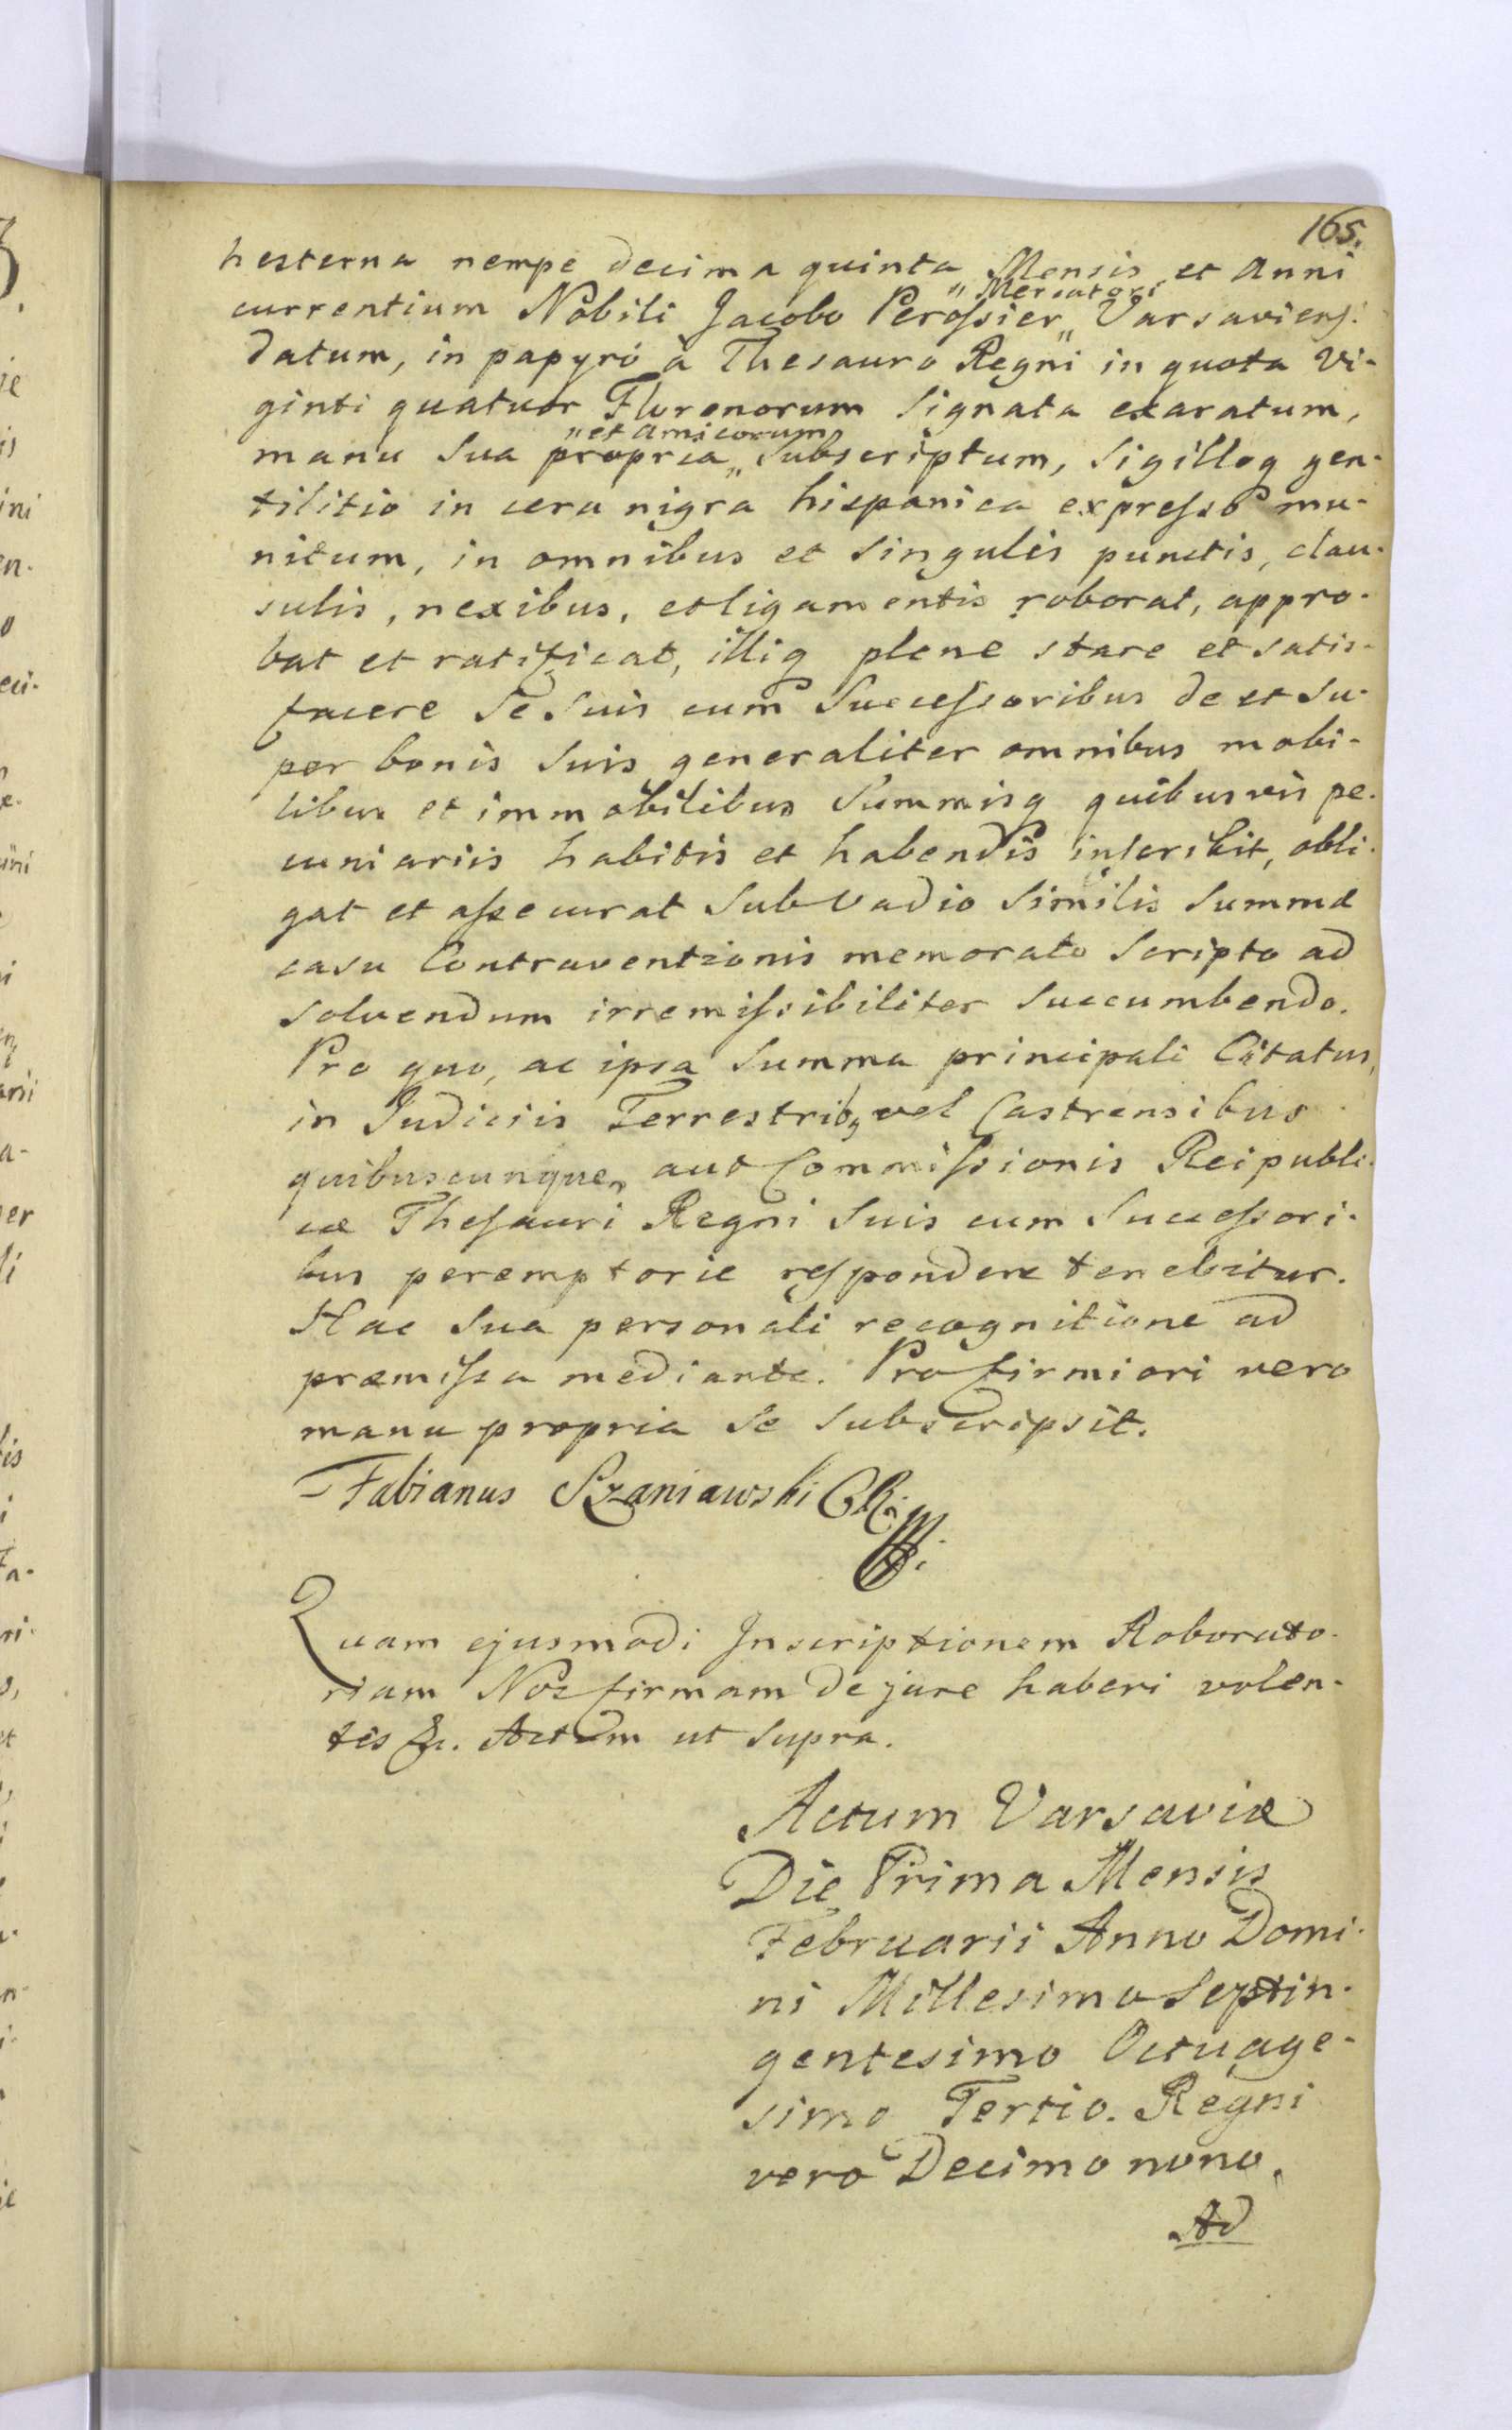 165.
hesterna nempe decima quinta Mensis et Anni
currentium Nobili Jacobo Perossier „ Mercatori „ Varsaviens:
datum, in papyró à Thesauro Regni in quota Vi-
ginti quatuor Florenorum Signata exaratum,
manu Sua propria „ et Amicorum „ Subscriptum, Sigilloq gen-
tilitio in cera nigra hispanica expresso mu-
nitum, in omnibus et Singulis punctis, clau-
sulis, nexibus, et ligamentis roborat, appro-
bat et ratificat, illiq plene stare et satis-
facere Se Suis cum Successoribus de et Su-
per bonis Suis generaliter omnibus mobi-
libus et immobilibus Summisq quibusvis pe-
cuniariis habitis et habendis inscribit, obli-
gat et assecurat Sub Vadio Similis Summæ
casu Contraventionis memorato Scripto ad
solvendum irremissibiliter Succumbendo.
Pro quo, ac ipsa Summa principali Citatus,
in Judiciis Terrestribq vel Castrensibus
quibuscunque, aut Commissionis Reipubli-
cæ Thesauri Regni Suis cum Successori-
bus peremptorie respondere tenebitur.
Hac Sua personali recognitione ad
præmissa mediante. Pro firmiori vero
manu propria Se Subscripsit.
Fabianus Szaniawski
Quam ejusmodi Inscriptionem Roborato-
riam Nos firmam de jure haberi volen-
tes &c. Actum ut Supra.
Actum Varsaviæ
Die Prima Mensis
Februarii Anno Domi-
ni Millesimo Septin-
gentesimo Octuage-
simo Tertio. Regni
vero Decimo nono.
Ad